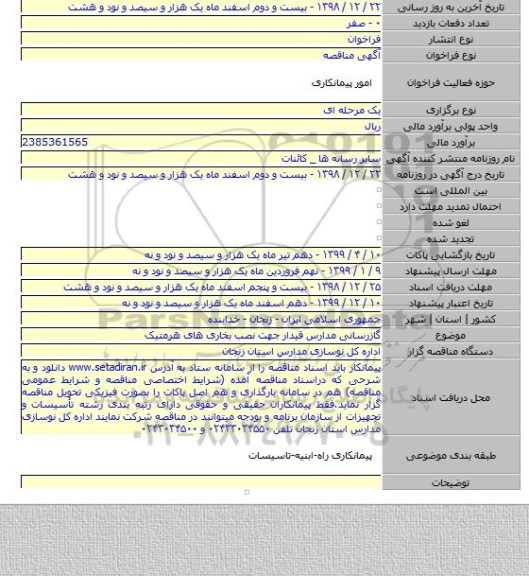 تاریخ آخرین به روز رسانی ۲۲ / ۱۲ / ۱۳۹۸ - بیست و دوم اسفند ماه یک هزار و سیصد و نود و هشت
تعداد دفعات بازدید ۰ - صفر
نوع انتشار فراخوان
نوع فراخوان آگهی مناقصه
حوزه فعالیت فراخوان امور پیمانکاری
نوع برگزاری یک مرحله ای
واحد پولی برآورد مالی ریال
برآورد مالی 2385361565
نام روزنامه منتشر کننده آگهی سایر رسانه ها _ کائنات
تاریخ درج آگهی در روزنامه ۲۲ / ۱۲ / ۱۳۹۸ - بیست و دوم اسفند ماه یک هزار و سیصد و نود و هشت
بین المللی است
احتمال تمدید مهلت دارد
لغو شده
تجدید شده
تاریخ بازگشایی پاکات ۱۰ / ۴ / ۱۳۹۹ - دهم تیر ماه یک هزار و سیصد و نود و نه
مهلت ارسال پیشنهاد ۹ / ۱ / ۱۳۹۹ - نهم فروردین ماه یک هزار و سیصد و نود و نه
مهلت دریافت اسناد ۲۵ / ۱۲ / ۱۳۹۸ - بیست و پنجم اسفند ماه یک هزار و سیصد و نود و هشت
تاریخ اعتبار پیشنهاد ۱۰ / ۱۲ / ۱۳۹۹ - دهم اسفند ماه یک هزار و سیصد و نود و نه
کشور | استان | شهر جمهوری اسلامی ایران - زنجان - خدابنده
موضوع گازرسانی مدارس قیدار جهت نصب بخاری های هرمتیک
دستگاه مناقصه گزار اداره کل نوسازی مدارس استان زنجان
پیمانکار باید اسناد مناقصه را از سامانه ستاد به آدرس www.setadiran.ir دانلود و به
شرحی که دراسناد مناقصه آمده (شرایط اختصاصی مناقصه و شرایط عمومی
مناقصه) هم در سامانه بارگذاری و هم اصل پاکات را بصورت فیزیکی تحویل مناقصه
محل دریافت اسناد گزار نماید.فقط پیمانکاران حقیقی و حقوقی دارای رتبه بندی رشته تاسیسات و
تجهیزات از سازمان برنامه و بودجه میتوانند در مناقصه شرکت نمایند اداره کل نوسازی
مدارس استان زنجان تلفن ۰۲۴۳۳۰۳۴۵۵۰ و ۰۲۴۳۰۳۴۵۰۰
طبقه بندی موضوعی پیمانکاری راه-ابنیه-تاسیسات
توضیحات
ParsNamadData
۰۲۱-۸۸۳۴۹۶۷۰-۵